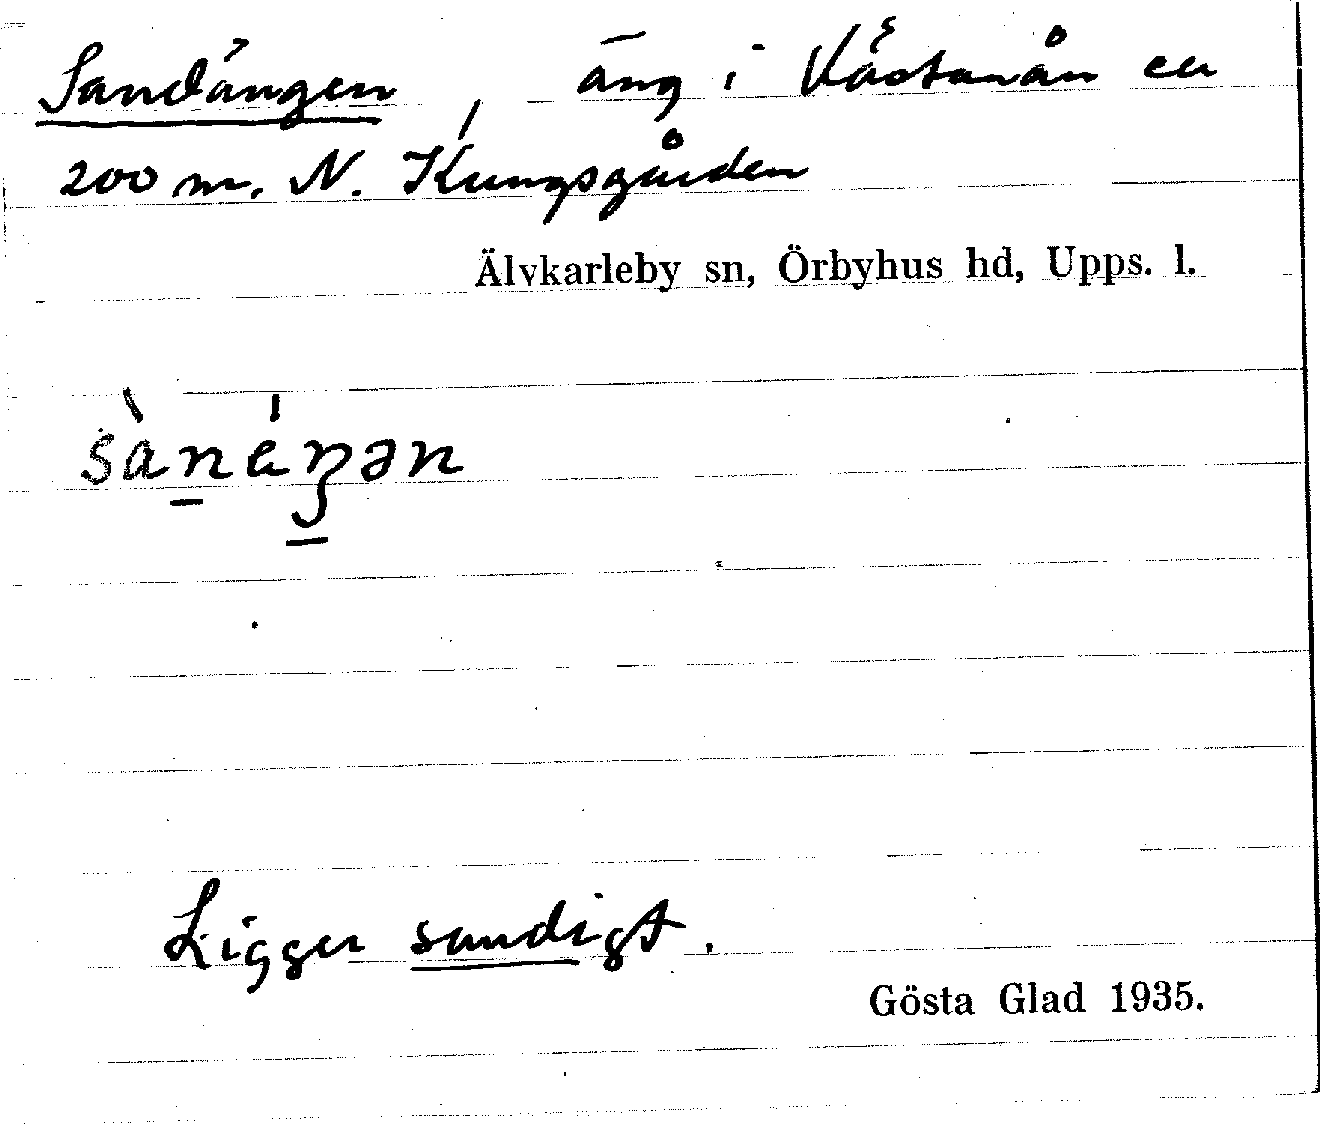 Sandängen, äng i Västanån ca
200 m. N. Kungsgården
Älvkarleby sn, Örbyhus hd, Upps. l.
sànéŋən
Ligger sandigt.
Gösta Glad 1935.